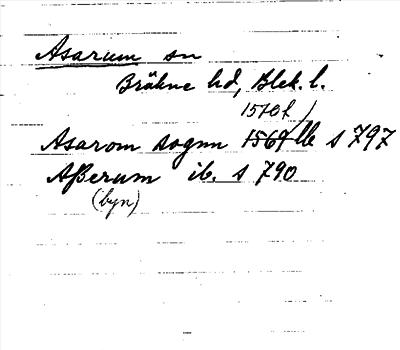 Asarum sn
Bräkne hd, Blek. l.
1570f
Asarom sognn 1569 lb s 797
Aßerum ib. s 790
(byn)